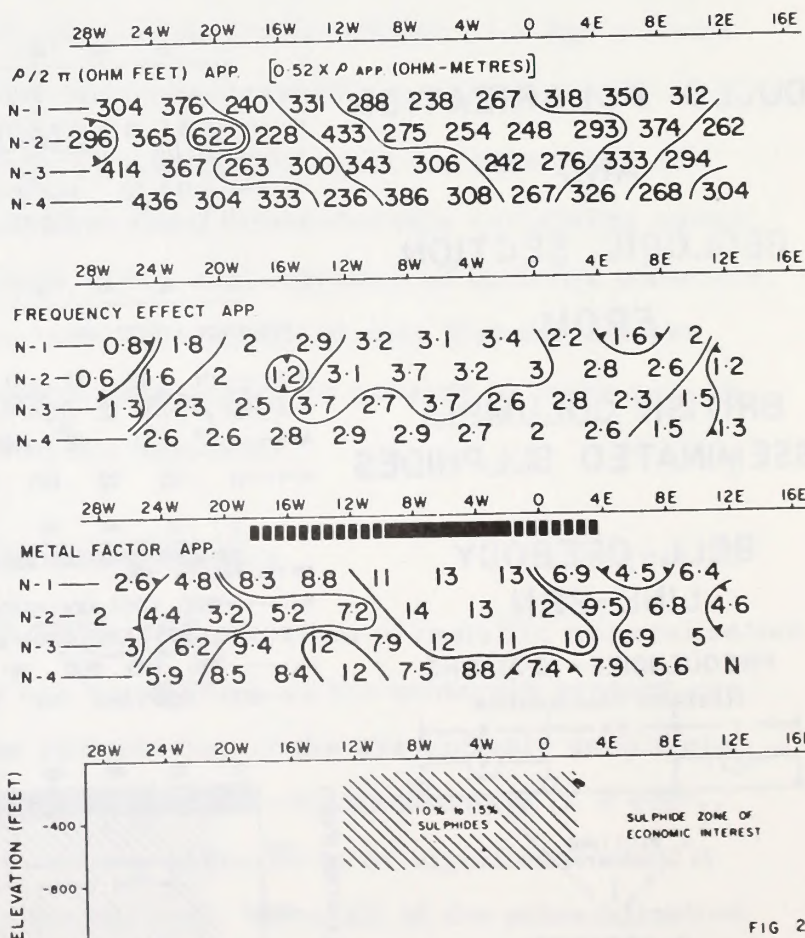 28W 24W 20W 16W 12W 8W 4W 0 4E 8E 12E 16E
ρ/2 π (OHM FEET) APP. [0·52 X ρ APP. (OHM-METRES)]
N-1 — 304 376 240 331 288 238 267 318 350 312
N-2 — 296 365 622 228 433 275 254 248 293 374 262
N-3 — 414 367 263 300 343 306 242 276 333 294
N-4 — 436 304 333 236 386 308 267 326 268 304
28W 24W 20W 16W 12W 8W 4W 0 4E 8E 12E 16E
FREQUENCY EFFECT APP.
N-1 — 0·8 1·8 2 2·9 3·2 3·1 3·4 2·2 1·6 2
N-2 — 0·6 1·6 2 1·2 3·1 3·7 3·2 3 2·8 2·6 1·2
N-3 — 1·3 2·3 2·5 3·7 2·7 3·7 2·6 2·8 2·3 1·5
N-4 — 2·6 2·6 2·8 2·9 2·9 2·7 2 2·6 1·5 1·3
28W 24W 20W 16W 12W 8W 4W 0 4E 8E 12E 16E
METAL FACTOR APP.
N-1 — 2·6 4·8 8·3 8·8 11 13 13 6·9 4·5 6·4
N-2 — 2 4·4 3·2 5·2 7·2 14 13 12 9·5 6·8 4·6
N-3 — 3 6·2 9·4 12 7·9 12 11 10 6·9 5
N-4 — 5·9 8·5 8·4 12 7·5 8·8 7·4 7·9 5·6 N
28W 24W 20W 16W 12W 8W 4W 0 4E 8E 12E 16E
ELEVATION (FEET)
-400
-800
10% to 15%
SULPHIDES
SULPHIDE ZONE OF
ECONOMIC INTEREST
FIG 2